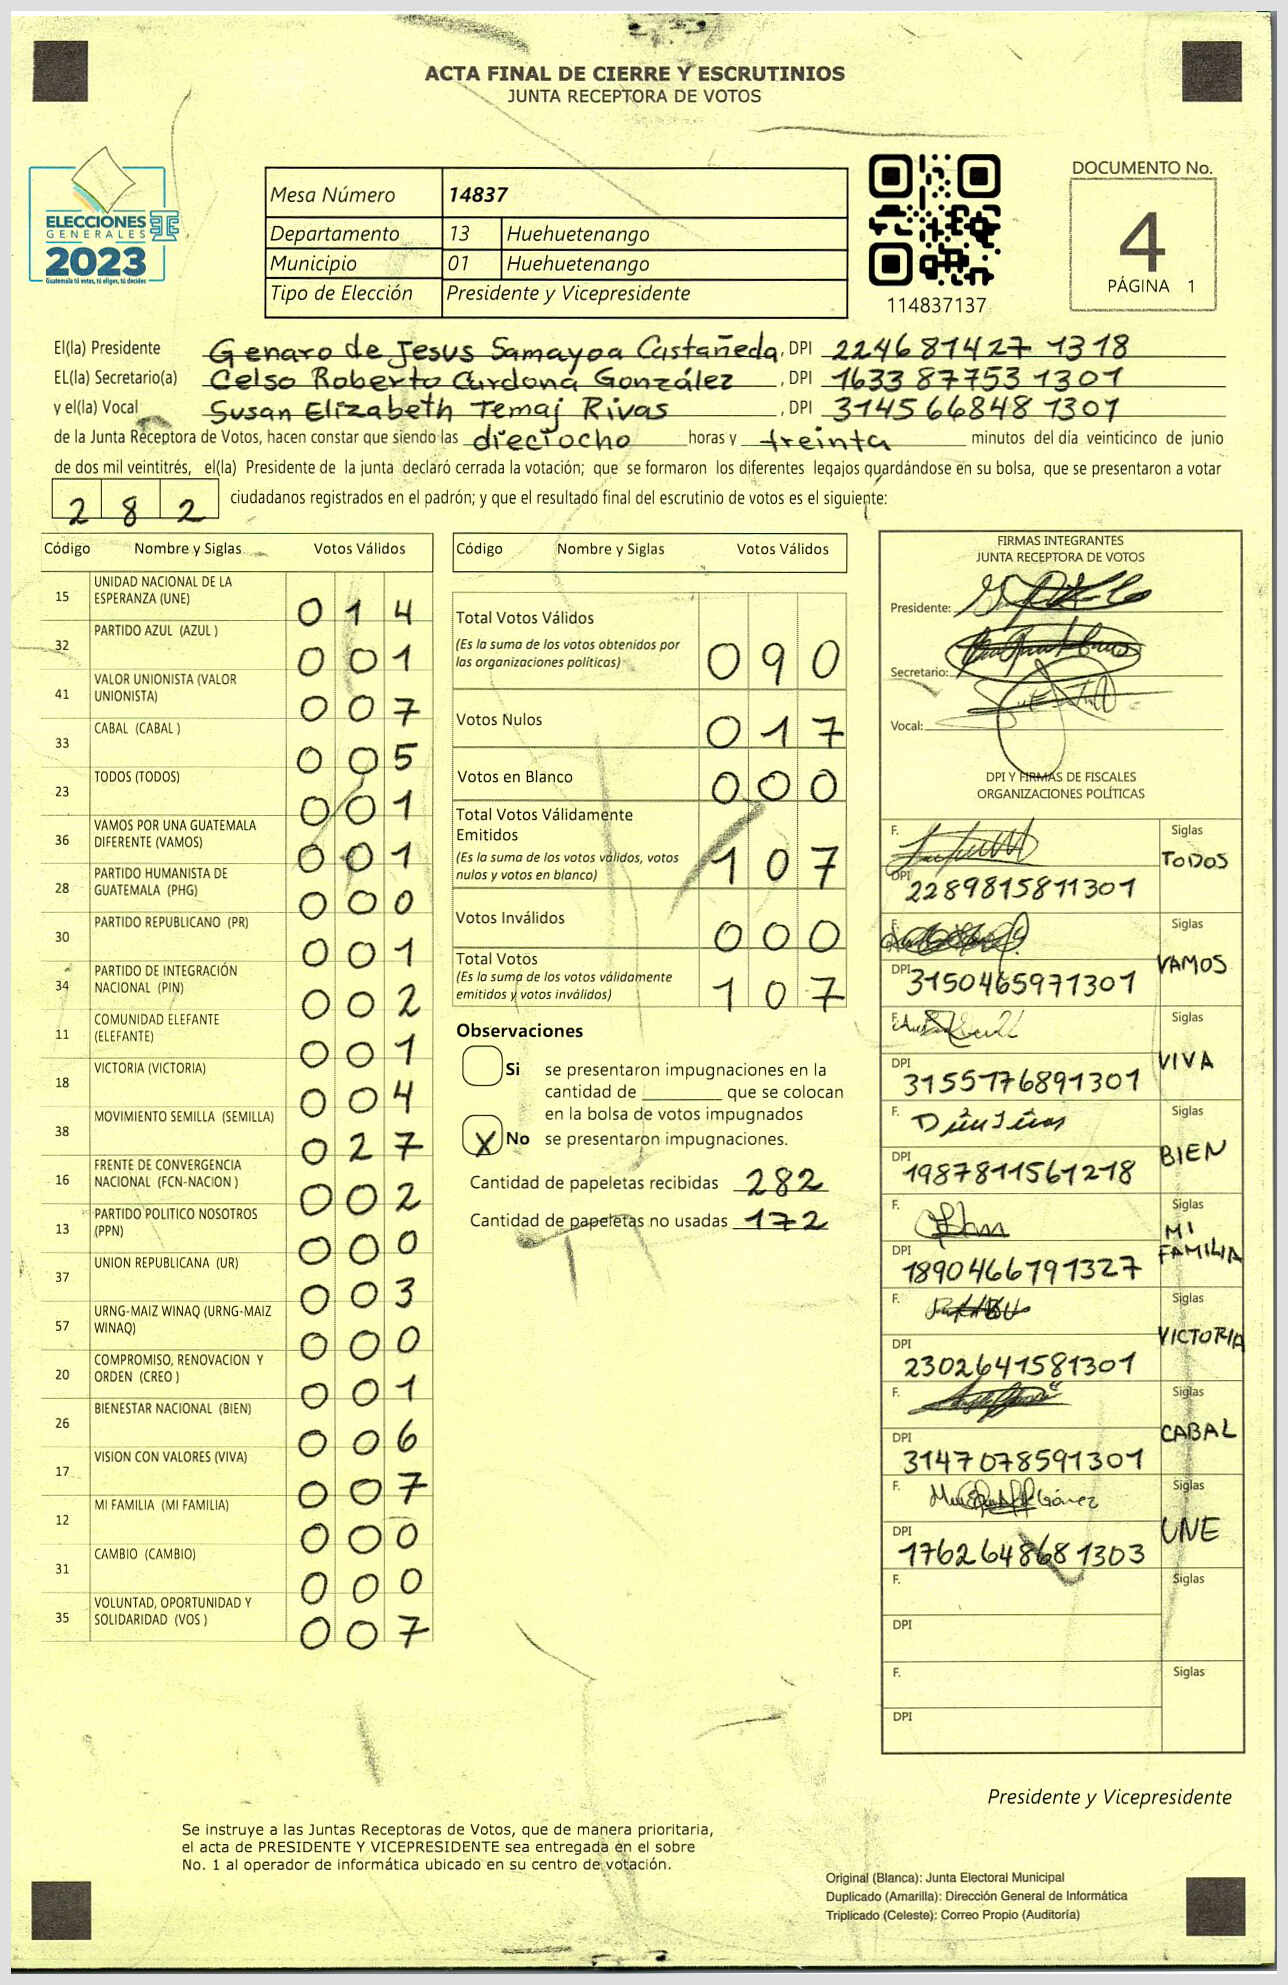 ACTA FINAL DE CIERRE Y ESCRUTINIOS
JUNTA RECEPTORA DE VOTOS
ELECCIONES
GENERALES
2023
Guatemala tú votas, tú eliges, tú decides
Mesa Número 14837
Departamento 13 Huehuetenango
Municipio 01 Huehuetenango
Tipo de Elección Presidente y Vicepresidente
114837137
DOCUMENTO No.
4
PÁGINA 1
El(la) Presidente Genaro de Jesus Samayoa Castañeda, DPI 224681427 1318
EL(la) Secretario(a) Celso Roberto Cardona González, DPI 1633 87753 1301
y el(la) Vocal Susan Elizabeth Temaj Rivas, DPI 3145 66848 1301
de la Junta Receptora de Votos, hacen constar que siendo las dieciocho horas y treinta minutos del día veinticinco de junio
de dos mil veintitrés, el(la) Presidente de la junta declaró cerrada la votación; que se formaron los diferentes legajos guardándose en su bolsa, que se presentaron a votar
2 8 2 ciudadanos registrados en el padrón; y que el resultado final del escrutinio de votos es el siguiente:
Código Nombre y Siglas Votos Válidos
15 UNIDAD NACIONAL DE LA ESPERANZA (UNE) 0 1 4
32 PARTIDO AZUL (AZUL ) 0 0 1
41 VALOR UNIONISTA (VALOR UNIONISTA) 0 0 7
33 CABAL (CABAL ) 0 0 5
23 TODOS (TODOS) 0 0 1
36 VAMOS POR UNA GUATEMALA DIFERENTE (VAMOS) 0 0 1
28 PARTIDO HUMANISTA DE GUATEMALA (PHG) 0 0 0
30 PARTIDO REPUBLICANO (PR) 0 0 1
34 PARTIDO DE INTEGRACIÓN NACIONAL (PIN) 0 0 2
11 COMUNIDAD ELEFANTE (ELEFANTE) 0 0 1
18 VICTORIA (VICTORIA) 0 0 4
38 MOVIMIENTO SEMILLA (SEMILLA) 0 2 7
16 FRENTE DE CONVERGENCIA NACIONAL (FCN-NACION ) 0 0 2
13 PARTIDO POLITICO NOSOTROS (PPN) 0 0 0
37 UNION REPUBLICANA (UR) 0 0 3
57 URNG-MAIZ WINAQ (URNG-MAIZ WINAQ) 0 0 0
20 COMPROMISO, RENOVACION Y ORDEN (CREO ) 0 0 1
26 BIENESTAR NACIONAL (BIEN) 0 0 6
17 VISION CON VALORES (VIVA) 0 0 7
12 MI FAMILIA (MI FAMILIA) 0 0 0
31 CAMBIO (CAMBIO) 0 0 0
35 VOLUNTAD, OPORTUNIDAD Y SOLIDARIDAD (VOS ) 0 0 7
Código Nombre y Siglas Votos Válidos
Total Votos Válidos 0 9 0
(Es la suma de los votos obtenidos por
las organizaciones políticas)
Votos Nulos 0 1 7
Votos en Blanco 0 0 0
Total Votos Válidamente
Emitidos 1 0 7
(Es la suma de los votos válidos, votos
nulos y votos en blanco)
Votos Inválidos 0 0 0
Total Votos 1 0 7
(Es la suma de los votos válidamente
emitidos y votos inválidos)
Observaciones
Si se presentaron impugnaciones en la
cantidad de ________ que se colocan
en la bolsa de votos impugnados
X No se presentaron impugnaciones.
Cantidad de papeletas recibidas 282
Cantidad de papeletas no usadas 172
FIRMAS INTEGRANTES
JUNTA RECEPTORA DE VOTOS
Presidente:
Secretario:
Vocal:
DPI Y FIRMAS DE FISCALES
ORGANIZACIONES POLÍTICAS
F. Siglas
TODOS
DPI 2289815811301
F. Siglas
VAMOS
DPI 3150465971301
F. Siglas
VIVA
DPI 3155176891301
F. Siglas
BIEN
DPI 1987811561218
F. Siglas
MI FAMILIA
DPI 1890466791327
F. Siglas
VICTORIA
DPI 2302641581301
F. Siglas
CABAL
DPI 3147078591301
F. Siglas
UNE
DPI 1762648681303
F. Siglas
DPI
F. Siglas
DPI
Presidente y Vicepresidente
Se instruye a las Juntas Receptoras de Votos, que de manera prioritaria,
el acta de PRESIDENTE Y VICEPRESIDENTE sea entregada en el sobre
No. 1 al operador de informática ubicado en su centro de votación.
Original (Blanca): Junta Electoral Municipal
Duplicado (Amarilla): Dirección General de Informática
Triplicado (Celeste): Correo Propio (Auditoría)